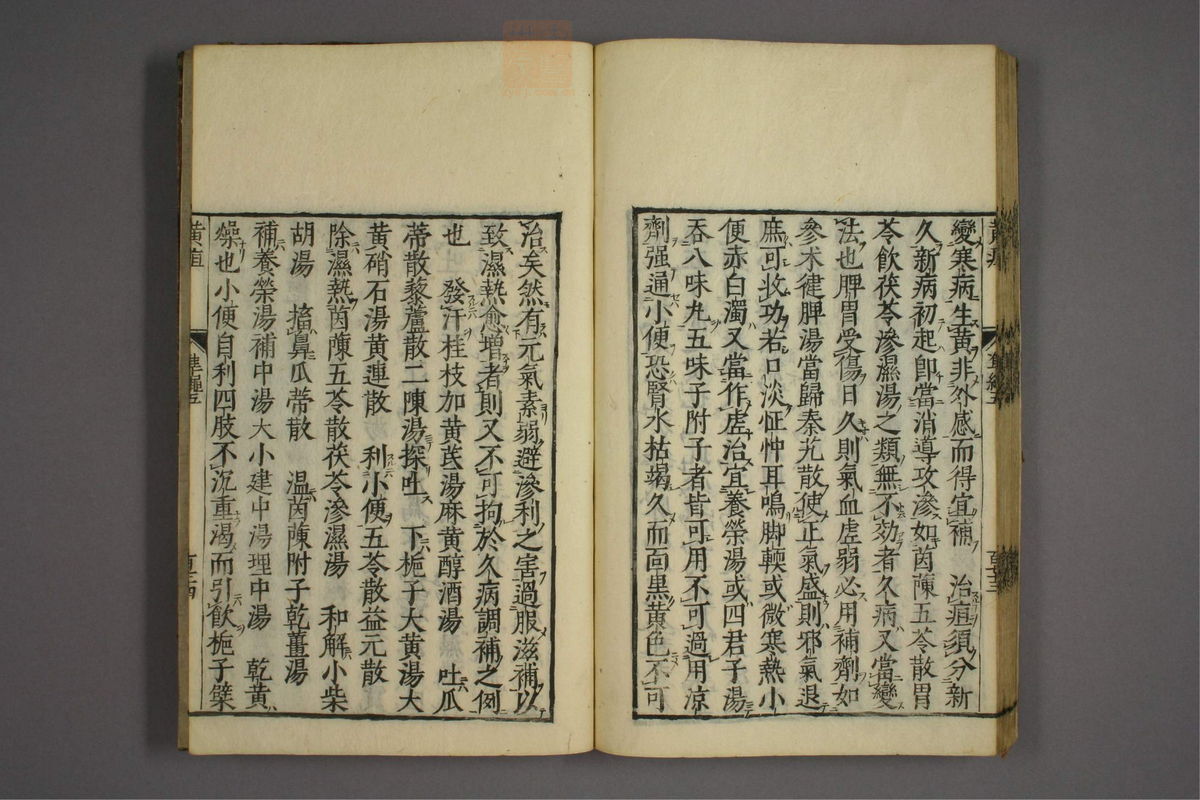 變寒病生黃非外感而得宜補　治疸須分新
久新病初起卽當消導攻滲如茵蔯五苓散胃
苓飮茯苓滲濕湯之類無不効者久病又當變
法也脾胃受傷日久則氣血虛弱必用補劑如
參术徤脾湯當歸秦艽散使正氣盛則邪氣退
庶可收功若口淡怔忡耳鳴脚輭或微寒熱小
便赤白濁又當作虛治宜養榮湯或四君子湯
吞八味丸五味子附子者皆可用不可過用涼
劑强通小便恐腎水枯竭久而面黒黃色不可
治矣然有元氣素弱避滲利之害過服滋補以
致濕熱愈增者則又不可拘於久病調補之例
也　發汗桂枝加黃芪湯麻黃醇酒湯　吐瓜
蒂散藜蘆散二陳湯探吐　下梔子大黃湯大
黃硝石湯黃連散　利小便五苓散益元散
除濕熱茵蔯五苓散茯苓滲濕湯　和解小柴
胡湯　搐鼻瓜蒂散　温茵蔯附子乾薑湯
補養榮湯補中湯大小建中湯理中湯　乾黃
燥也小便自利四肢不沉重渴而引飮梔子檗
黃疸